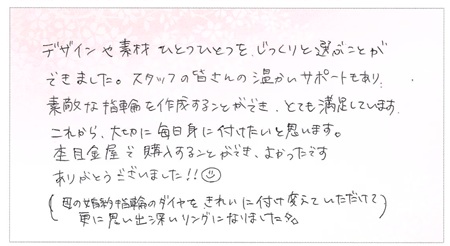 デザインや素材ひとつひとつを、じっくりと選ぶことが
できました。スタッフの皆さんの温かいサポートもあり、
素敵な指輪を作成することができ、とても満足しています。
これから、大切に毎日身に付けたいと思います。
杢目金屋で購入することができ、よかったです
ありがとうございました!!☺
(母の婚約指輪のダイヤをきれいに付け変えていただけて
更に思い出深いリングになりました。)